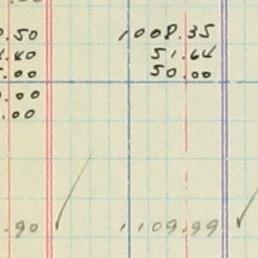 .50 1008.35
.40 51.64
.00 50.00
.00
.00
.90 1109.99